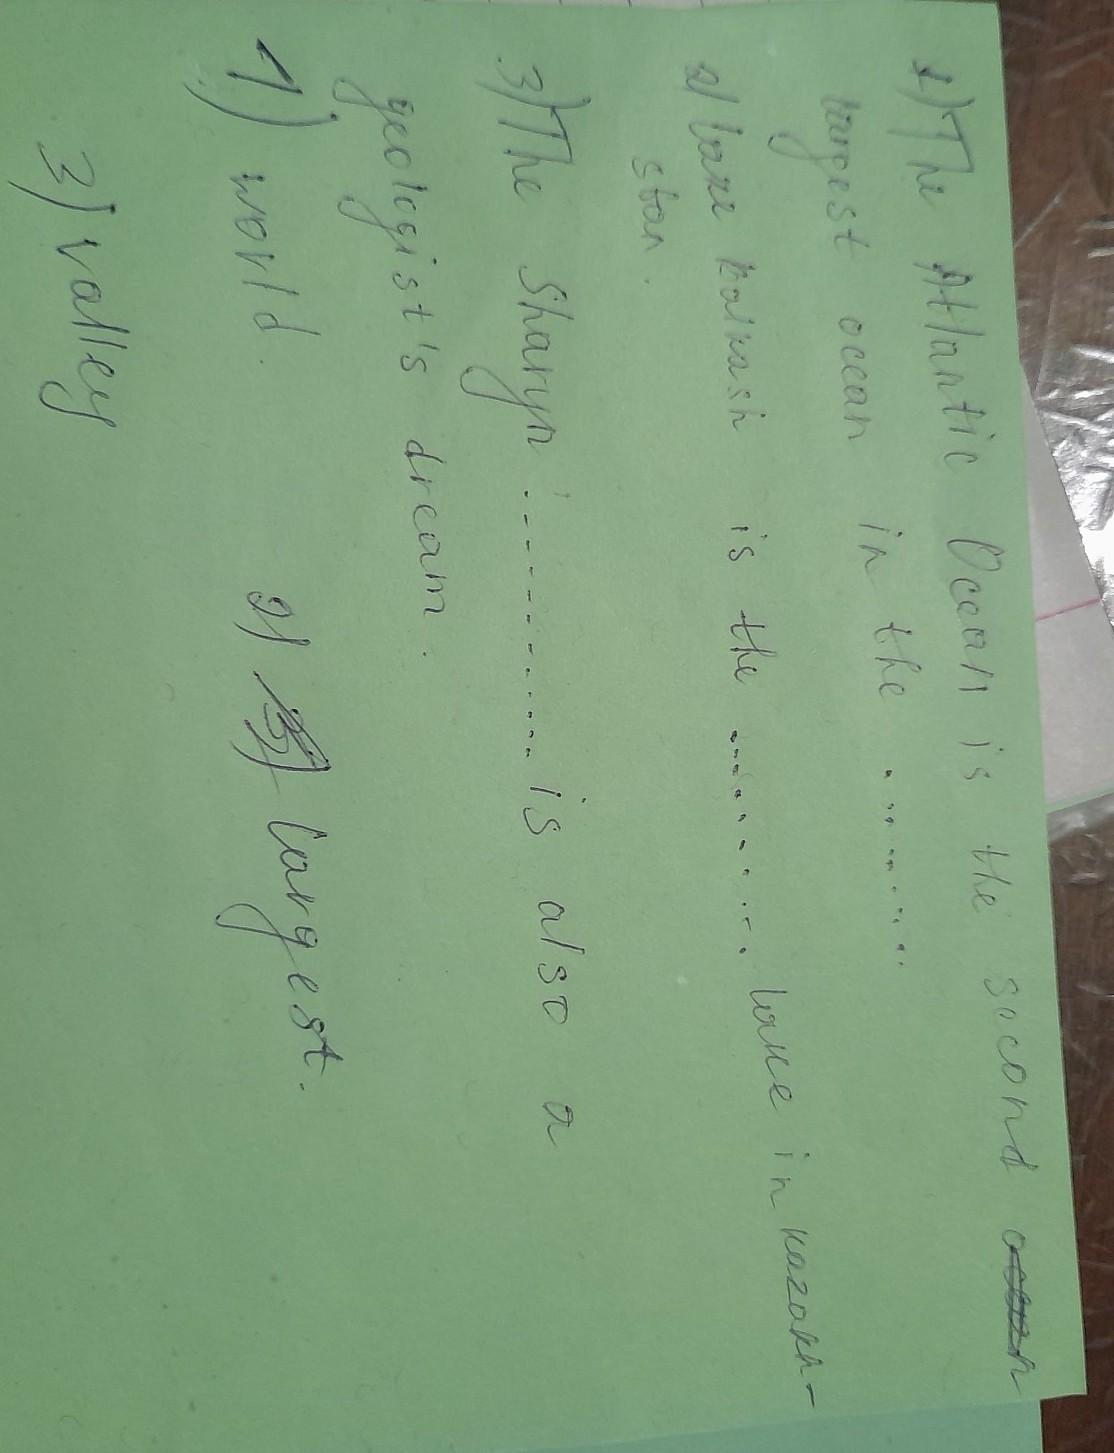 1) The Atlantic Ocean is the second
largest ocean in the ..........
2) lake Balkash is the .......... lake in kazakh-
stan.
3) The Sharyn ............ is also a
geologist's dream.
1) world. 2) largest.
3) valley